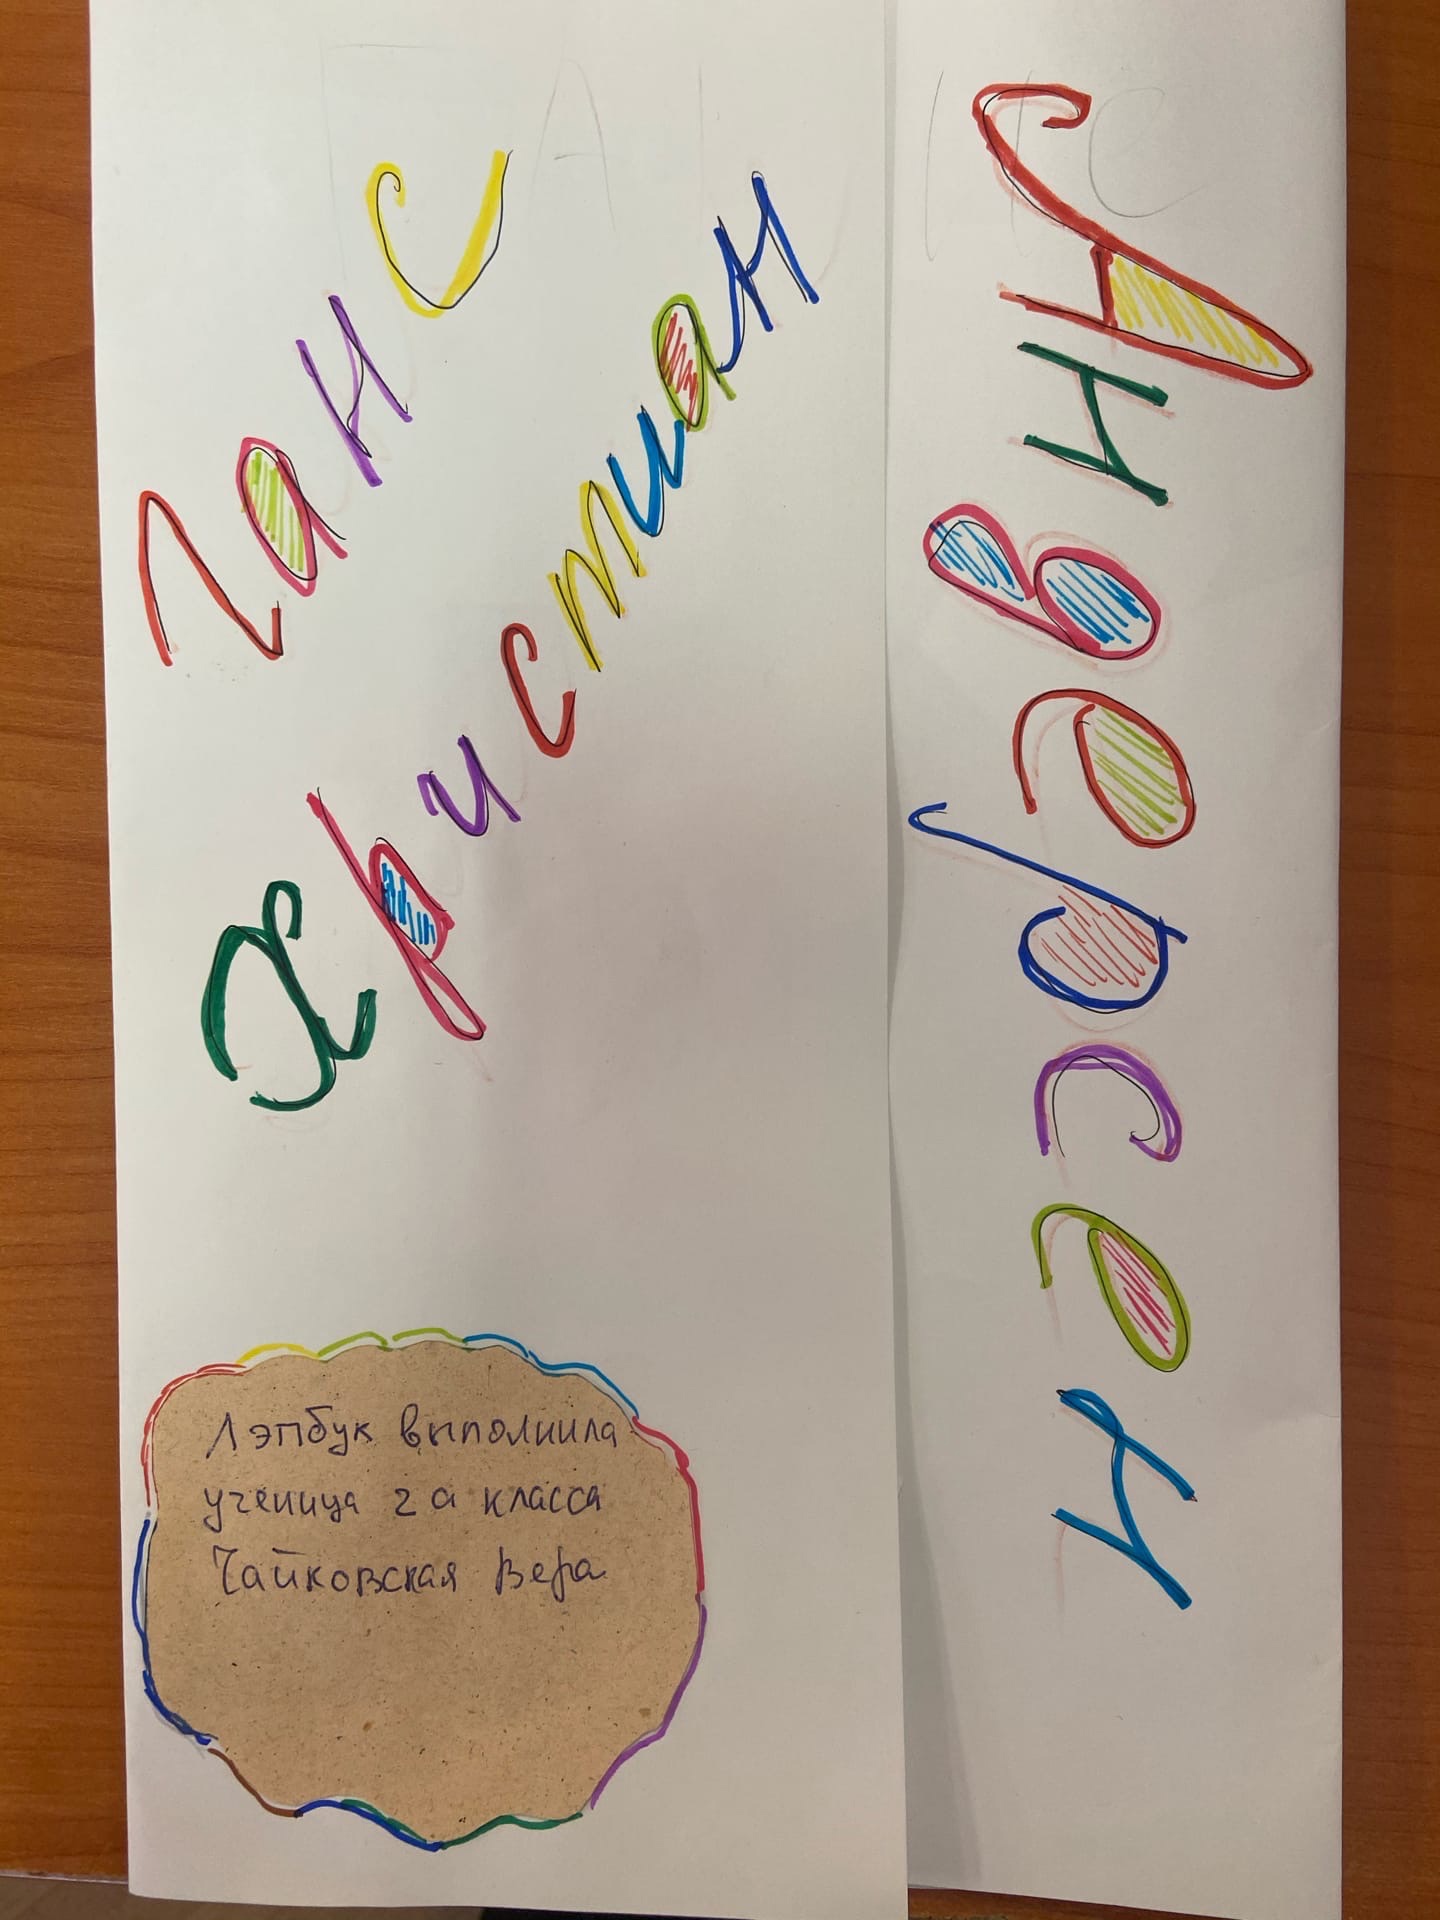 Ганс
Христиан
Андерсен
Лэпбук выполнила
ученица 2а класса
Чайковская Вера